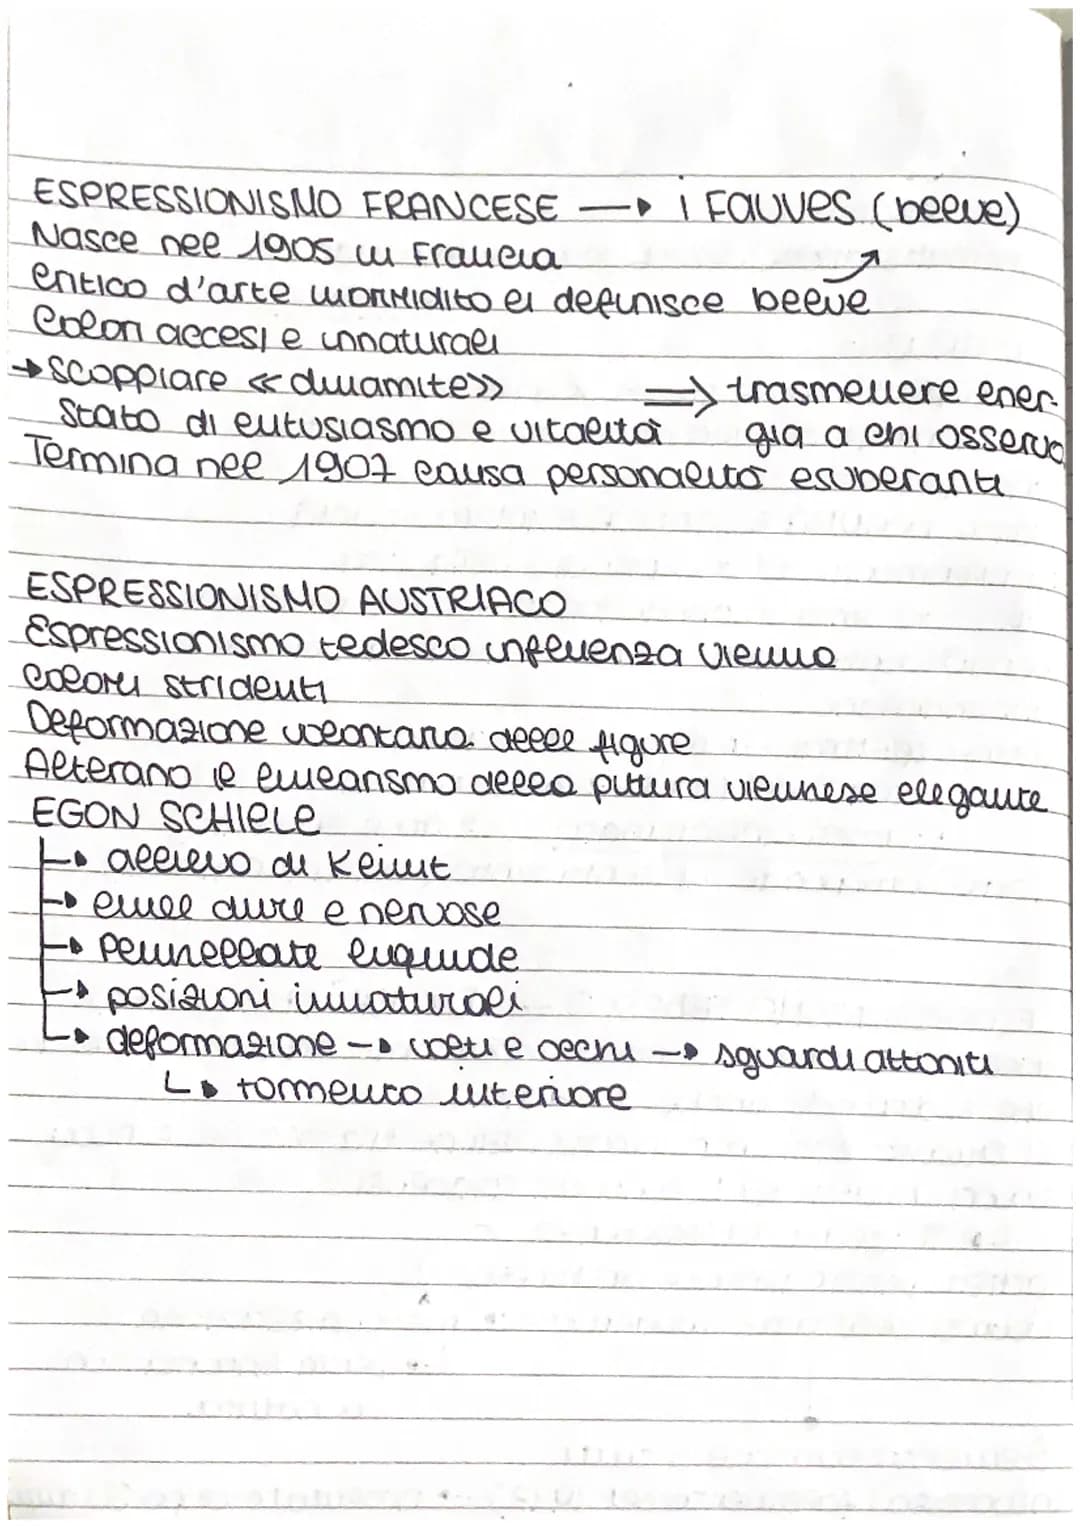 ESPRESSIONISMO FRANCESE → i Fauves (belve)
Nasce nel 1905 in Francia
critico d'arte inorridito ci definisce belve
Colori accesi e innaturali
→ scoppiare «dinamite»
Stato di entusiasmo e vitalità
⇒ trasmettere ener-
gia a chi osserva
Termina nel 1907 causa personalità esuberanti
ESPRESSIONISMO AUSTRIACO
Espressionismo tedesco influenza vienna
colori stridenti
Deformazione volontaria delle figure
Alterano il linearismo della pittura viennese elegante
EGON SCHIELE
→ allievo di Klimt
→ linee dure e nervose
→ Pennellate liquide
→ posizioni innaturali
→ deformazione → volti e occhi → sguardi attoniti
↳ tormento interiore